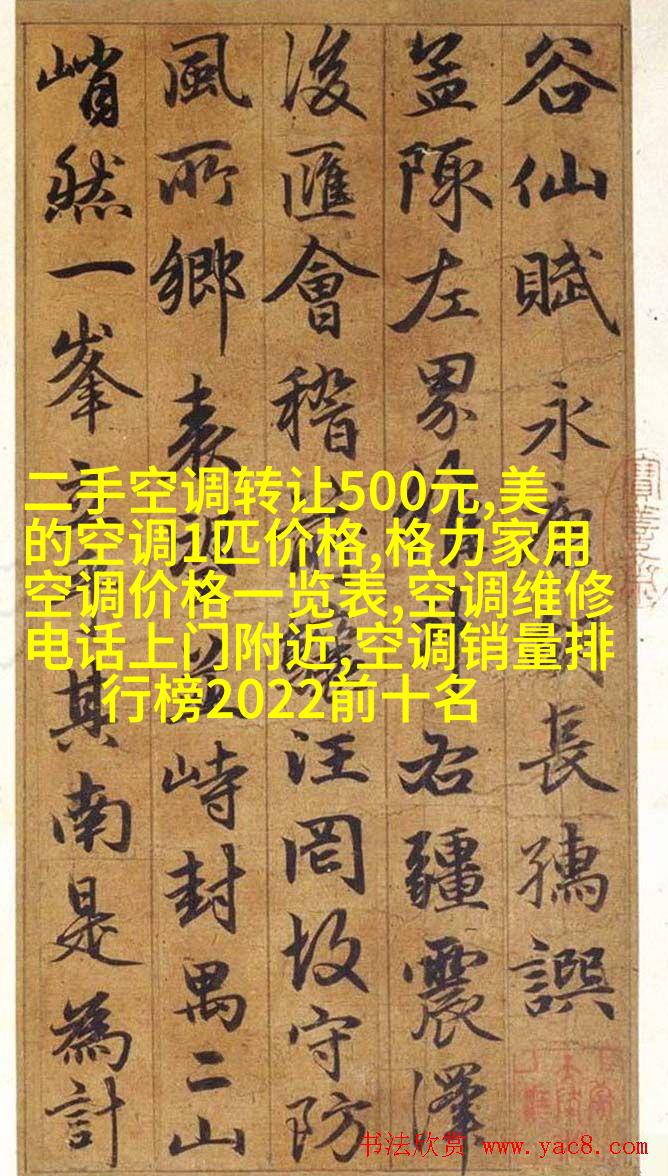 谷仙賦 永康胡長孺譔
盖陳左界 右疆震澤
浚匯會稽 汪罔故守防
風所鄉表 峙封禺二山
峭然一峯 其南是為計
二手空调转让500元,美
的空调1匹价格,格力家用
空调价格一览表,空调维修
电话上门附近,空调销量排
行榜2022前十名
书法欣赏 www.yac8.com